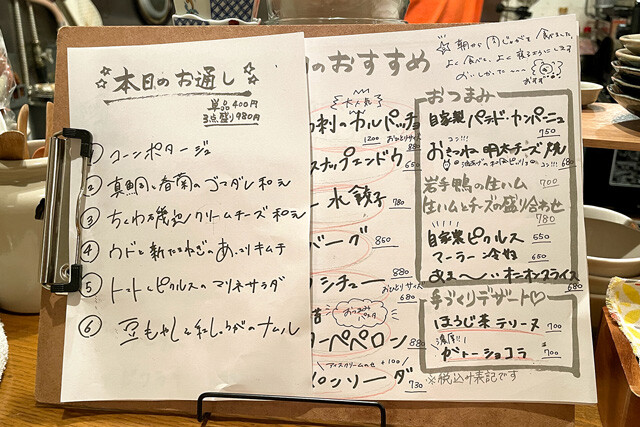 本日のお通し
単品400円
3点盛り980円
① コーンポタージュ
② 真鯛と春菊のゴマダレ和え
③ ちくわ磯辺クリームチーズ和え
④ ウドと新たまねぎのあっさりキムチ
⑤ トマトとピクルスのマリネサラダ
⑥ 豆もやしと紅しょうがのナムル
のおすすめ
大人気
刺のカルパッチ
1200
おひとりサイズ
680
スナップエンドウ
650
水餃子
780
バーグ
850
シチュー
880
おひとりサイズ
680
おつまみパスタ
ーペペロン
880
アイスクリームのせ +100
ロンソーダ
730
おつまみ
自家製 パテ・ド・カンパーニュ
750
明太チーズ焼
680
岩手鴨の生ハム 700
生ハムとチーズの盛り合わせ
780
自家製ピクルス 550
マーラー 650
オニオンスライス
680
手づくりデザート♡
ほうじ茶テリーヌ 700
濃厚!!
ガトーショコラ 700
※税込み表記です